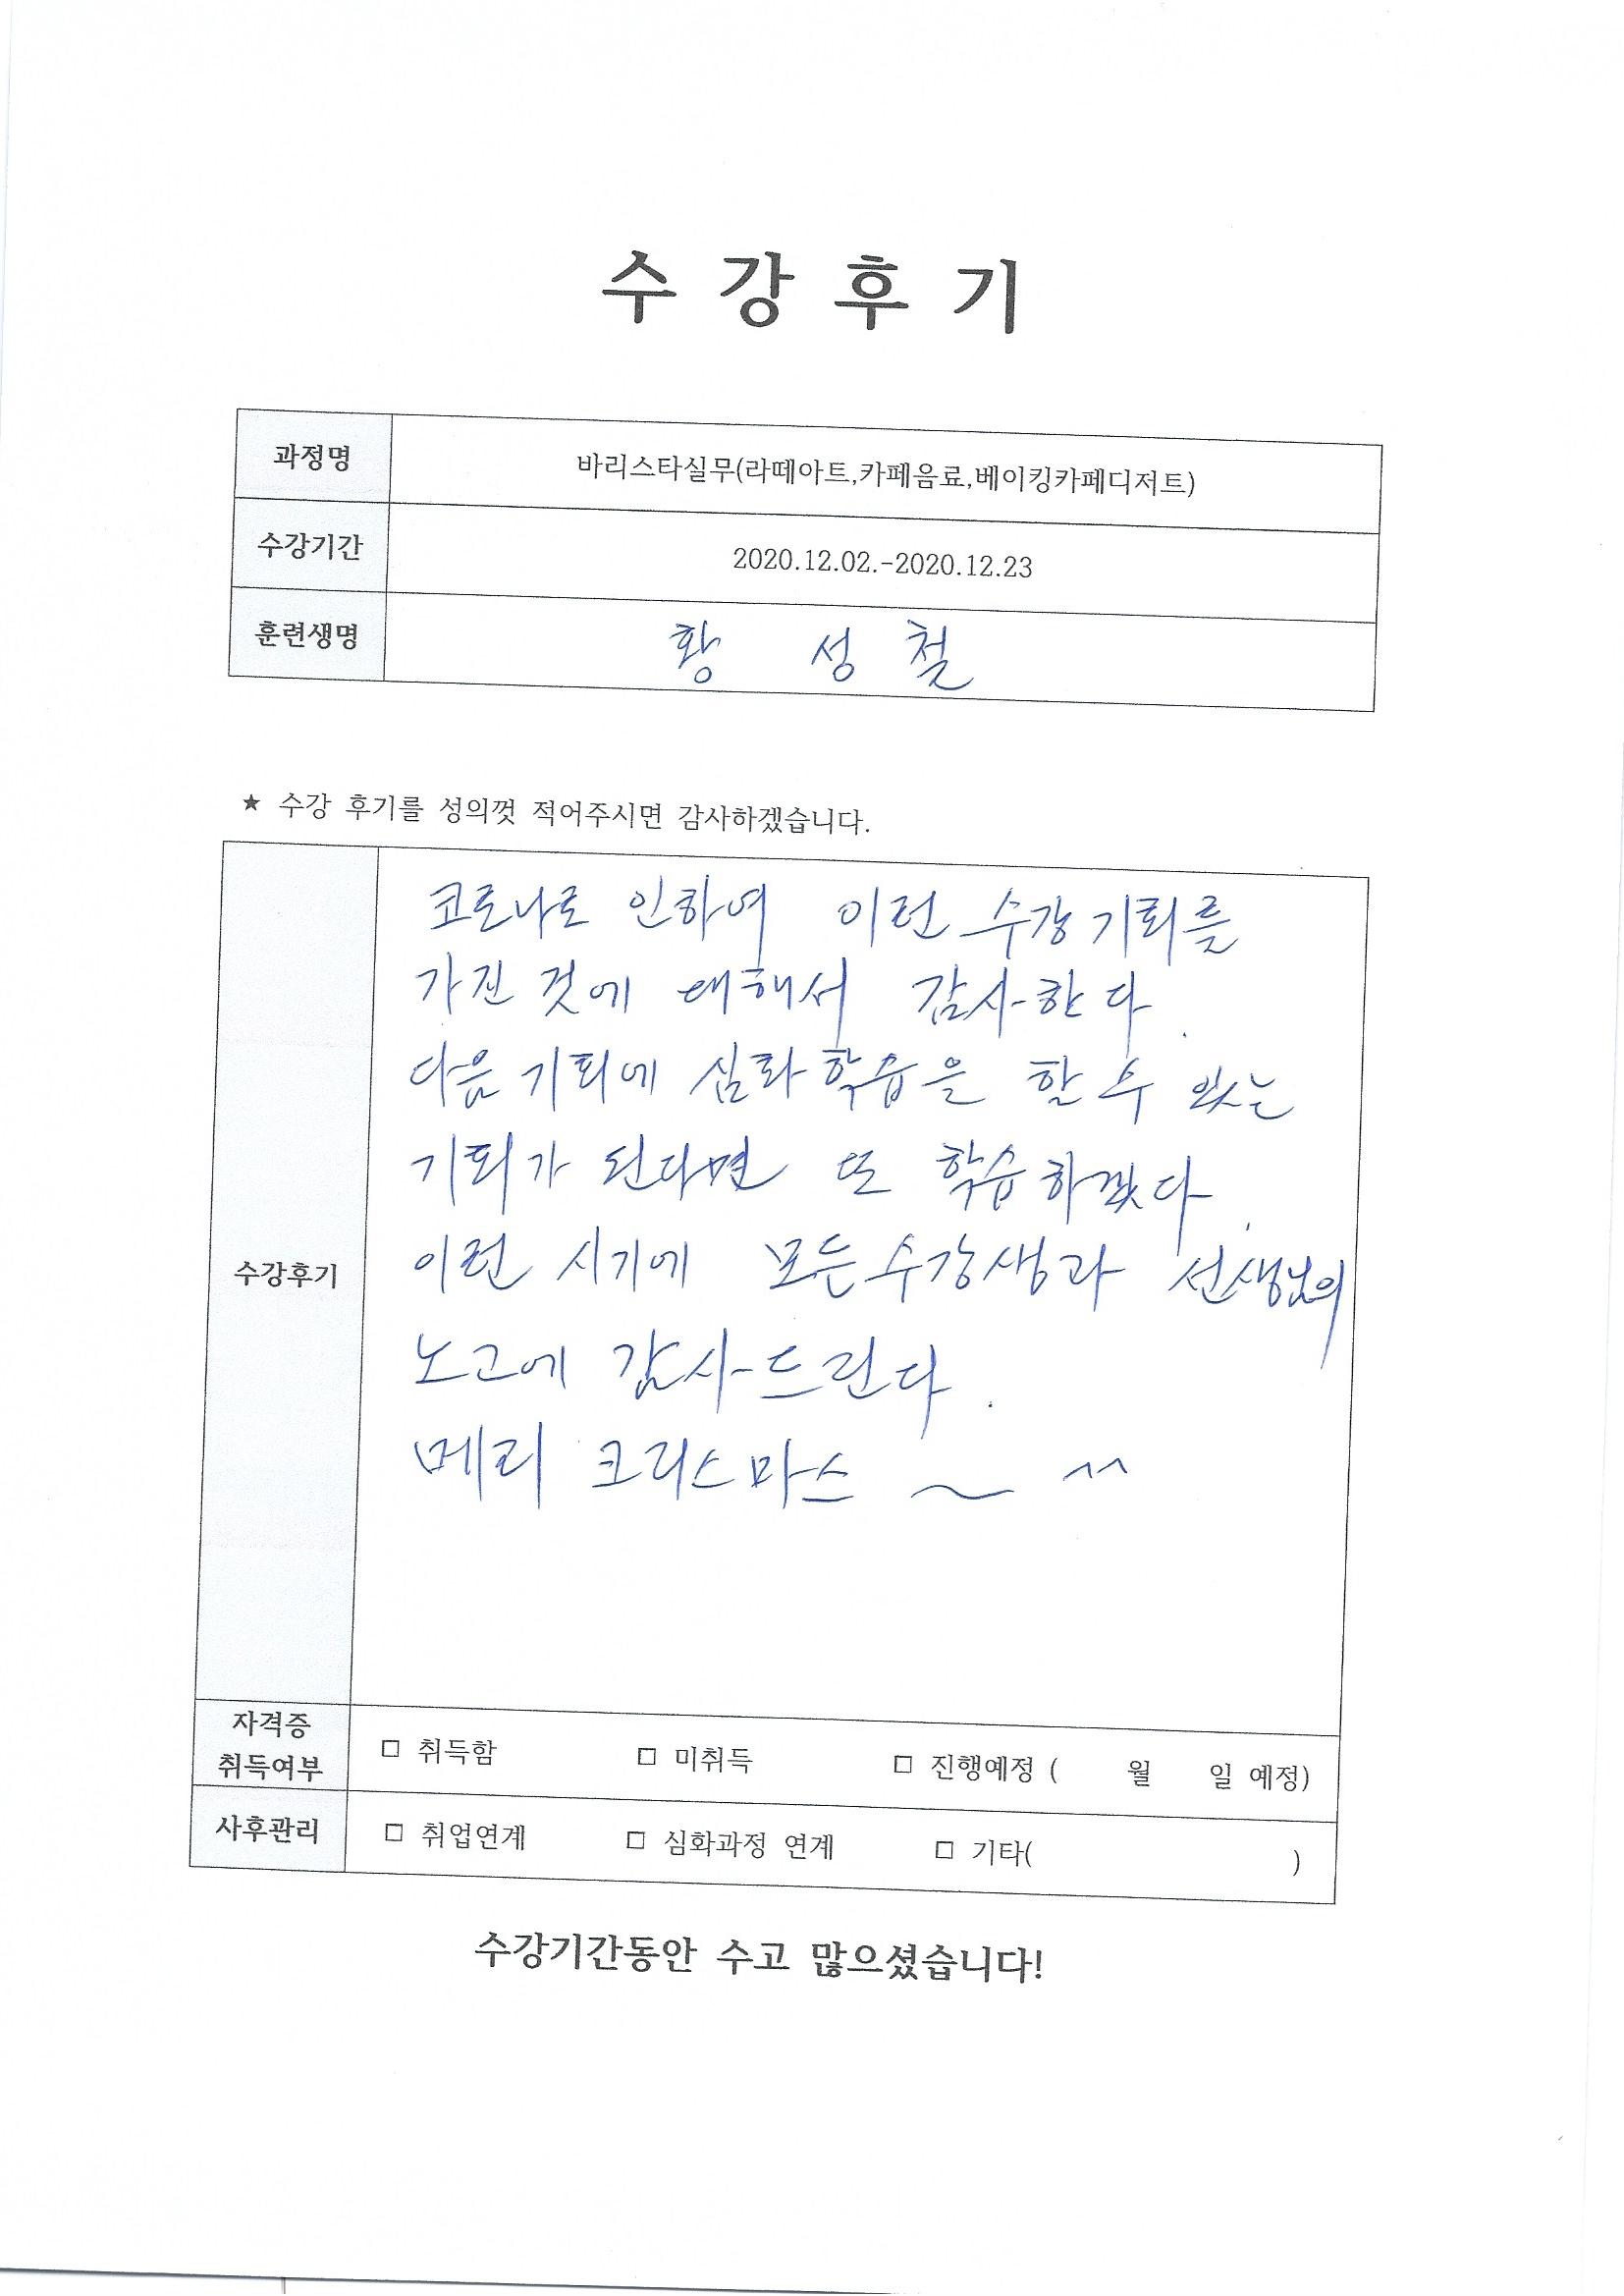 수 강 후 기
과정명 바리스타실무(라떼아트,카페음료,베이킹카페디저트)
수강기간 2020.12.02.-2020.12.23
훈련생명 황 성 철
★ 수강 후기를 성의껏 적어주시면 감사하겠습니다.
코로나로 인하여 이런 수강 기회를
가진 것에 대해서 감사한다.
다음 기회에 심화학습을 할 수 있는
기회가 된다면 또 학습하겠다.
수강후기 이런 시기에 모든 수강생과 선생님의
노고에 감사드린다.
메리 크리스마스 ~ ^^
자격증
취득여부 □ 취득함 □ 미취득 □ 진행예정 ( 월 일 예정)
사후관리 □ 취업연계 □ 심화과정 연계 □ 기타( )
수강기간동안 수고 많으셨습니다!